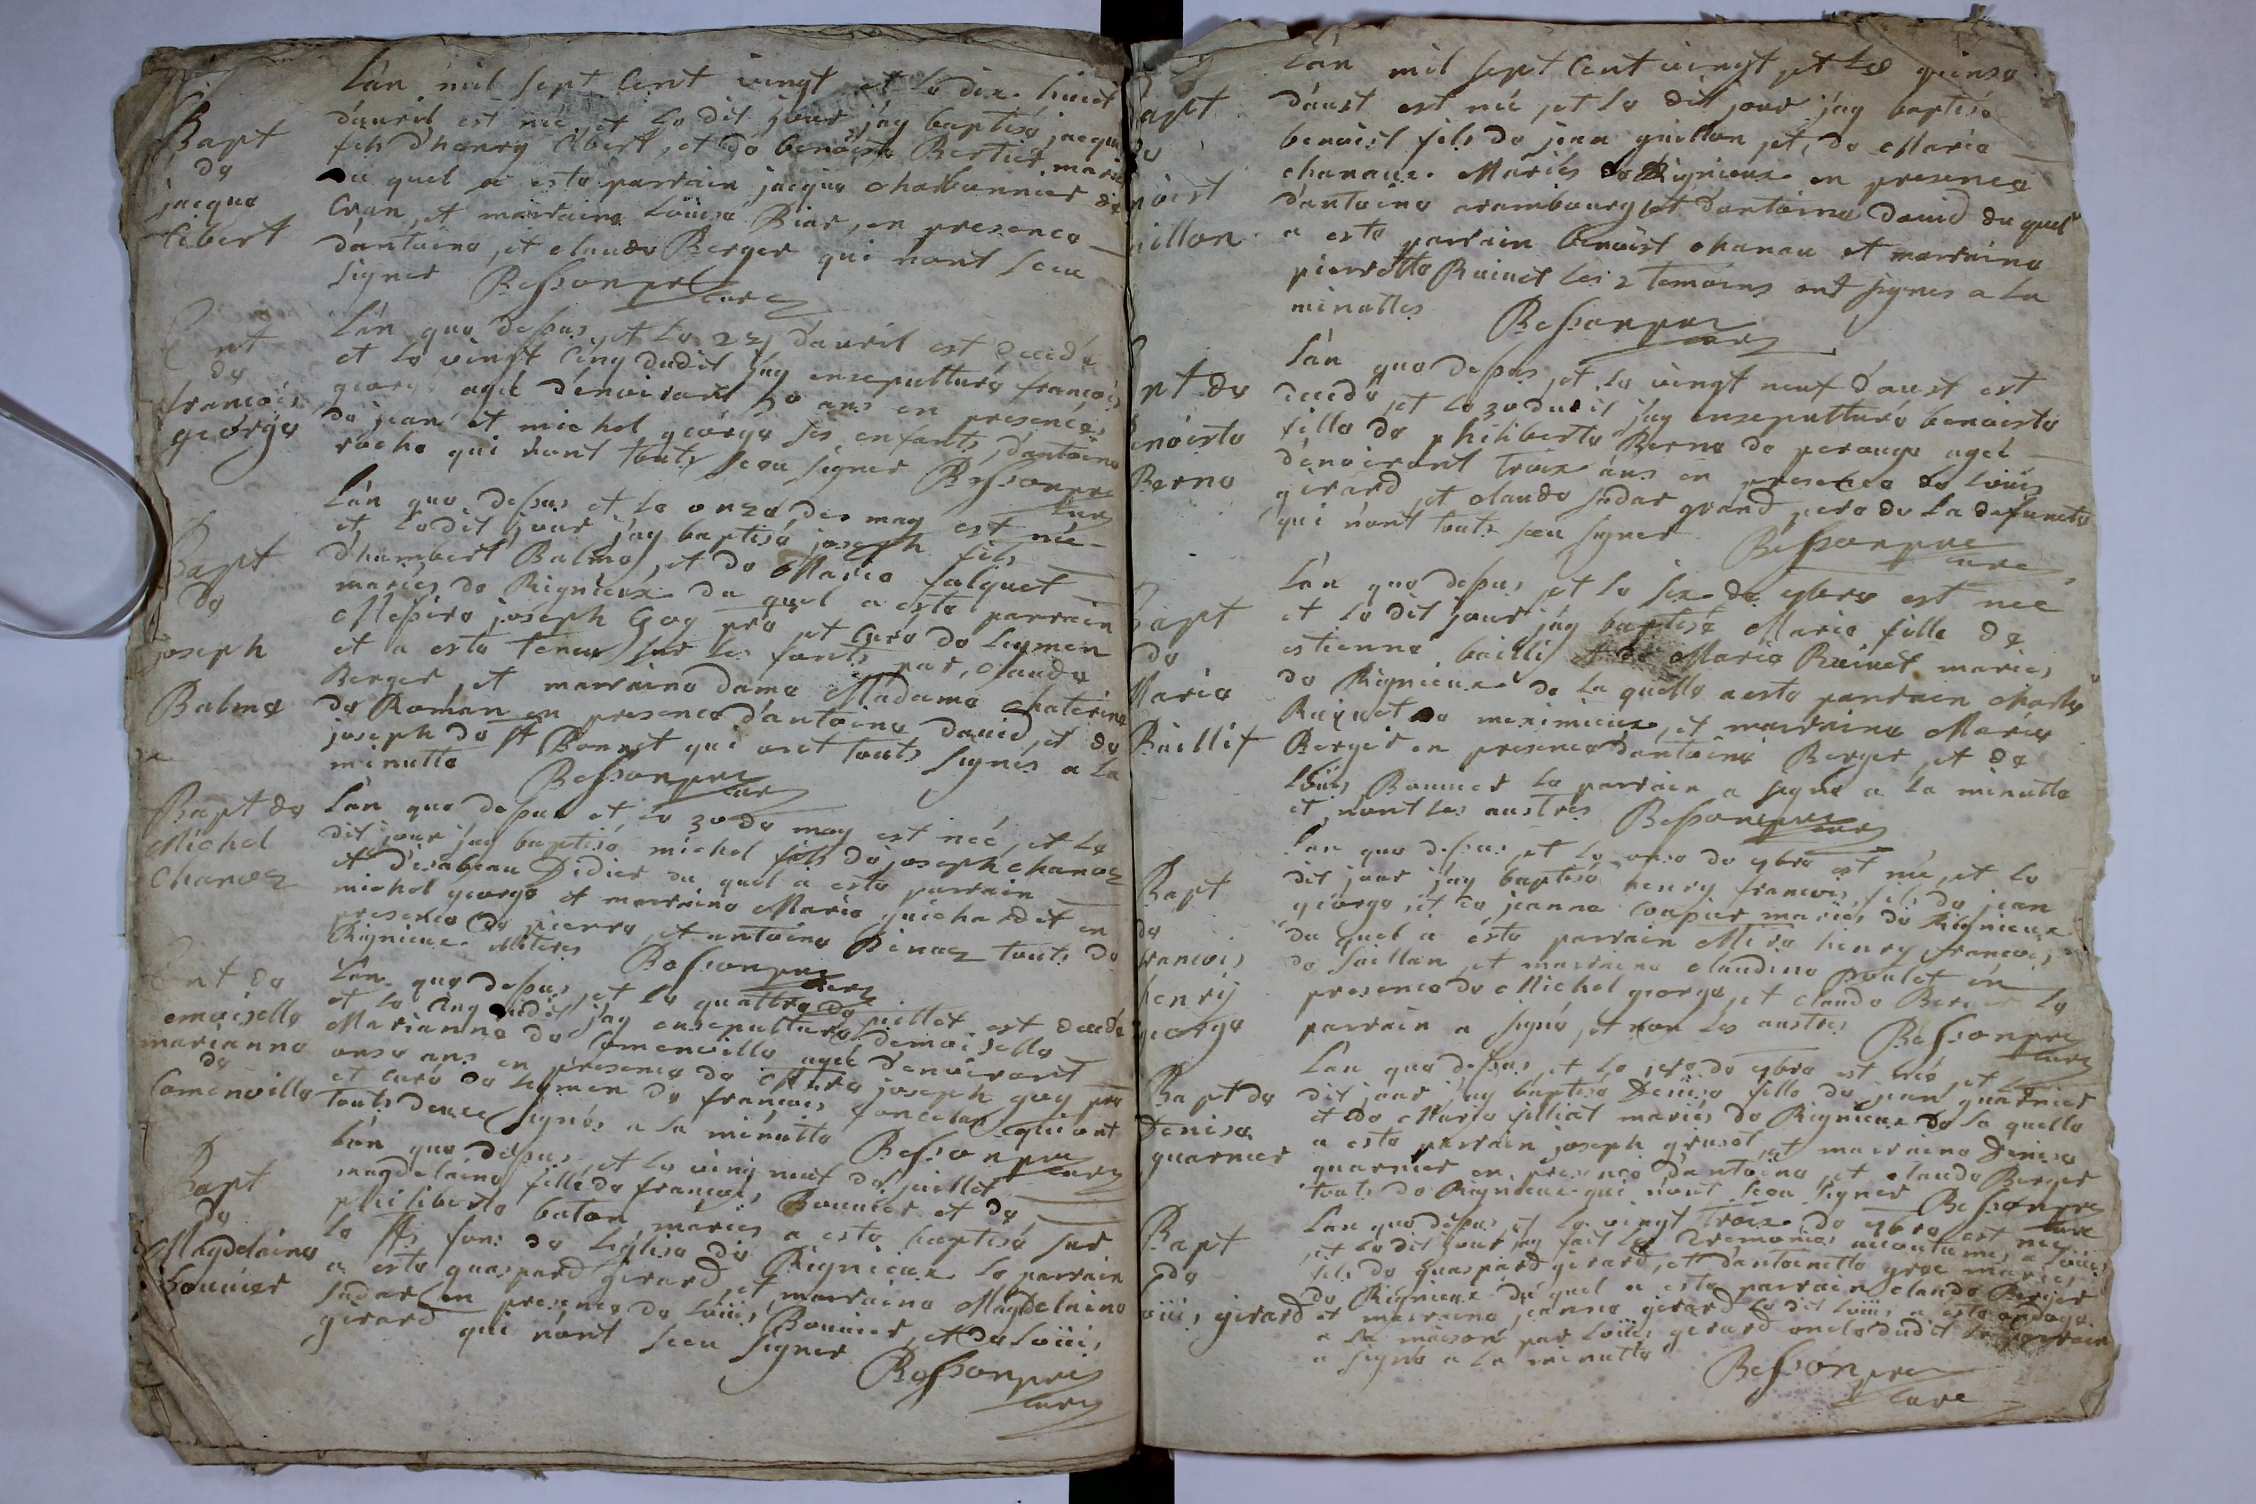 Bapt
de
jacque
Cibert
Lán mil sept Cent vingt et le dix huict
d'auril est née et le dit jour jáy baptisé jacque
fils d'henry Cibert, et dé benoiste Bertier mariés
du quel a esté parrain jacque charbonnier de
Cran, et marraine Loüise Biar, en presence
d'antoine, et claude Berger qui nont sceu
signer Besson pre
curé
Ent
de
francois
george
Lán que dessus, et le 24 d'auril est decedé
et le vingt Cinq dudit jáy ensepulturé francois
george agé dénviront 50 ans en presence
de jean et michel george ses enfants, d'antoine
roche qui n'ont touts sceu signer Besson pre
curé
Bapt
de
joseph
Balme
Lán que dessus et le onze des may est née
et ledit jour jáy baptisé joseph fils
d'humbert Balme, et de Marie falquet
mariés de Rignieux du quel a esté parrain
Messire joseph Goy pre et Curé de Luymen
et a esté tenu sur les fonts par, claude
Berger, et marraine dame Madame Chaterine
de Roman en presence d'antoine David, et de
joseph de st Bonnet qui ont touts signés a la
minutte Besson pre
curé
Bapt de
Michel
Chanoz
Lán que dessus et le 30 de may est née, et le
dit jour jáy baptisé michel fils de joseph chanoz
et d'isabeau Didier du quel a esté parrain
michel george et marraine Marie guichardet en
presence de pierre, et antoine Pinaz touts de
Rignieux illiteres Besson pre
curé
Ent de
emoiselle
marianne
de
Comenville
Lán que dessus, et le quattre de juillet est decedé
et le Cinq dudit jáy ensepulturé demoiselle
Marianne de Comenville agée dénviront
onse ans en presence de Mre joseph goy pre
et curé de Luymen de francois foncelar qui ont
touts deux signés a la minutte Besson pre
curé
Bapt
de
Magdelaine
bouuier
Lán que dessus, et le ving neuf de juillet
magdelaine fille de francois Bouuier et de
philiberte baton mariés a esté baptisé sur
le sts fons de Léglise de Rignieux le parrain
a esté guaspard girard, et marraine Magdelaine
sudar en presence de Loüis Bouuier, et de Loüis
girard qui n'ont sceu signer
Besson pre
curé
apt
de
noist
uillon
Lán mil sept Cent vingt et le quinse
d'aust est née et le dit jour jáy baptisé
benoist fils de jean guillon et, de Marie
chanaux Mariés de Rignieux en presence
d'antoine arambourg et d'antoine David du quel
a esté parrain benoist chanau et marraine
pierrette Ruinet les 2 temoins ont signés a la
minuttes Besson pre
curé
nt de
enoiste
Berne
Lán que dessus, et le vingt neuf d'aust est
decedé, et le 30 dudit jáy ensepulturé benoiste
fille de philiberte Berne de perouge agée
dénviront troix ans en presence de Loüis
girard, et claude sudar grand pere de la defuncte
qui n'ont touts sceu signer Besson pre
curé
Bapt
de
Maria
Baillit
Lán que dessus, et le six de 7bre est née
et le dit jour jáy baptisé Marie fille de
estienne bailli et de Marie Ruinet mariés
de Rignieux de la quelle a esté parrain charle
Ruynet de meximieux, et marraine Marie
Berger en presence d'antoine Berger, et de
Loüis Bouuier le parrain a signé a la minutte
et nont les austres Besson pre
curé
Bapt
de
rancois
henrij
george
Lán que dessus, et le onse de 7bre est née, et le
dit jour jáy baptisé henry francois, fils de jean
george, et de jeanne Coupier mariés de Rignieux
du quel a ésté parrain Mire henry francois
de saillan, et marraine claudine poulet en
presence de Michel george, et claude Berger le
parrain a signé, et non les austres Besson pre
curé
Bapt de
Denise
guarnier
dit jour jáy baptisé Denise fille de jean guarnier
et de Marie filliat mariés de Rignieux de la quelle
a esté parrain joseph gruset, et marraine Denise
guarnier en presence d'antoine, et claude Berger
touts de Rignieux qui n'ont sceu signer Besson pre
curé
Bapt
de
oüis girard
Lán que dessus, et le vingt troix de 7bre est née
et le dit jour jáy fait les ceremonies accoutumés a Loüis
fils de guaspard girard, et d'antoinette gros mariés
de Rignieux du quel a esté parrain claude Berger
et marraine, janne girard le dit Loüis a esté ondoyé
a la maison par Loüis girard oncle dudit le parrain
a signé a la minutte Besson pre
curé